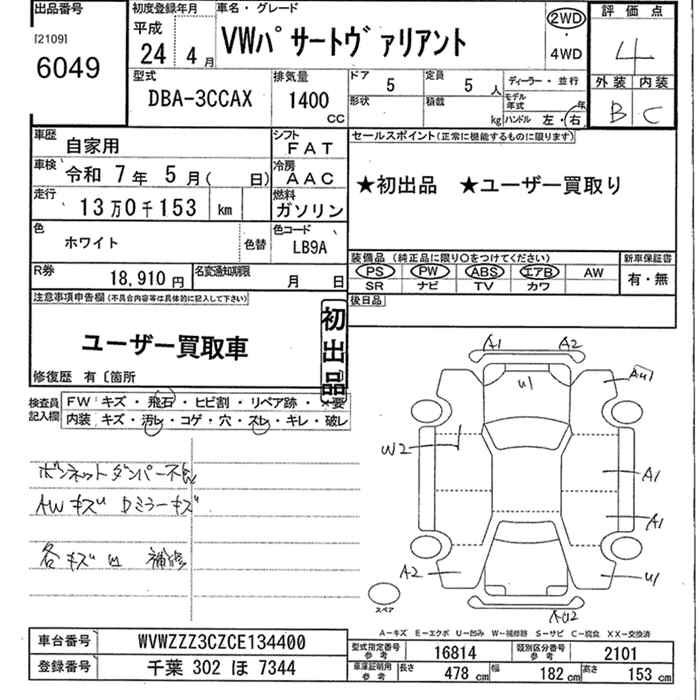 出品番号
[2109]
6049
初度登録年月
平成
24 年 4 月
車名・グレード
VWパサートヴァリアント
2WD
・
4WD
評価点
4
外装 内装
B C
型式
DBA-3CCAX
排気量
1400
CC
ドア
5
定員
5 人
形状
積載
kg
ディーラー・並行
モデル年式 年
ハンドル 左・右
車歴
自家用
シフト
FAT
車検
令和 7年 5月( 日)
冷房
AAC
走行
13万0千153 km
燃料
ガソリン
色
ホワイト
色替
色コード
LB9A
R券
18,910円
名変通知期限
月 日
セールスポイント(正常に機能するものに限ります)
★初出品 ★ユーザー買取り
装備品 (純正品に限り○をつけてください)
PS PW ABS エアB AW
SR ナビ TV カワ
新車保証書
有・無
後日品
注意事項申告欄(不具合内容等は具体的に記入して下さい)
ユーザー買取車
初出品
修復歴 有〔箇所
検査員記入欄
FW キズ・飛石・ヒビ割・リペア跡・×要
内装 キズ・汚レ・コゲ・穴・スレ・キレ・破レ
ボンネットダンパー不良
AWキズ Dミラーキズ
各キズ凹 補修
A1 A2
U1
AU1
W2
A1
A1
A2
U1
AU2
スペア
A−キズ E−エクボ U−凹み W−補修跡 S−サビ C−腐食 XX−交換済
車台番号
WVWZZZ3CZCE134400
登録番号
千葉 302 ほ 7344
型式指定番号
参考
16814
類別区分番号
参考
2101
車庫証明用
参考
長さ 478 cm 幅 182 cm 高さ 153 cm